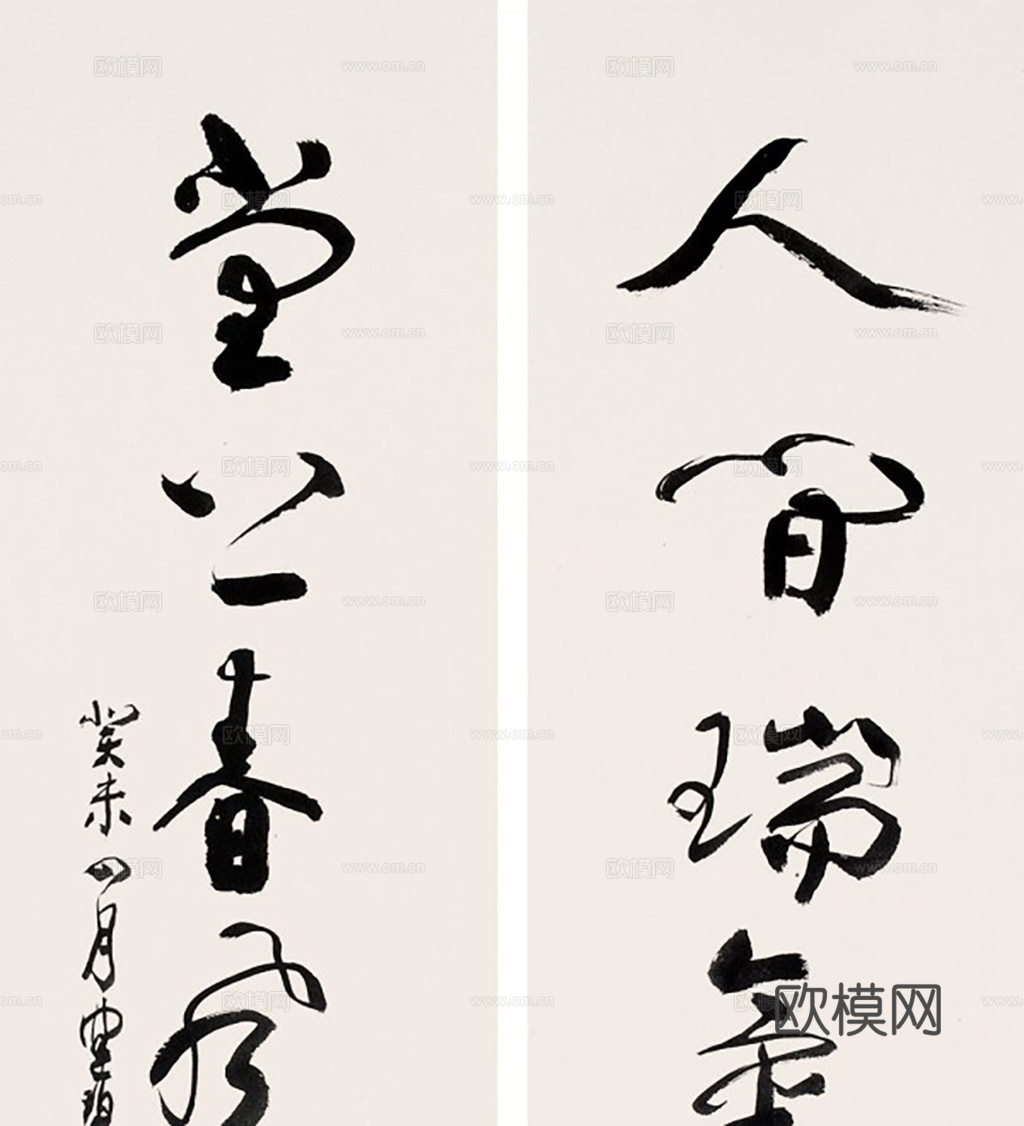 人間瑞氣
堂上春風
癸未四月
欧模网
www.om.cn